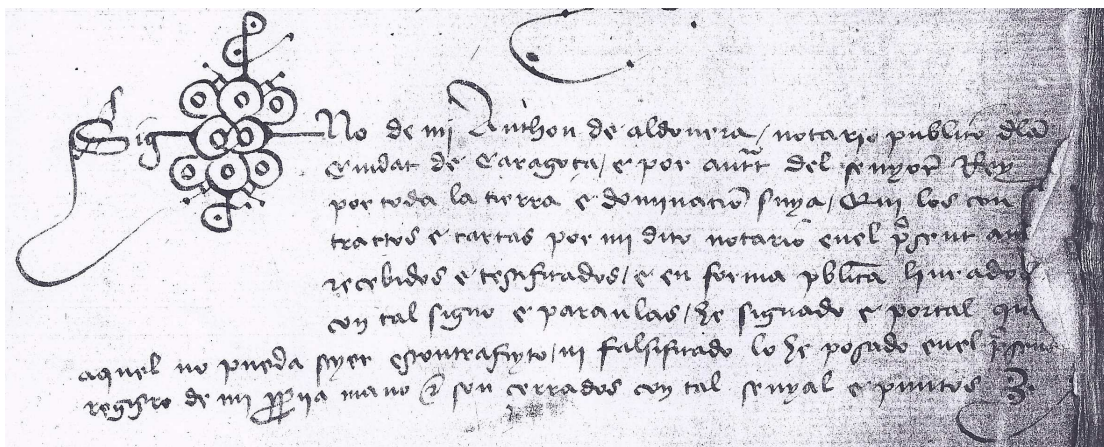 Sig No de mi Anthon de aldovera / notario publico dla
Ciudat de Caragoça / e por autt del senyor Rey
por toda la tierra e dominacio suya / Qui los con
tractos e cartas por mi dito notario enel psent an
recebidos e testificados / e en forma pblica livrados
con tal signo e paraulas / he signado e por tal qu
aquel no pueda seyer contrafeyto / ni falsificado lo he posado enel psent
registro de mi ppria mano e son cerrados con tal senyal e puntos